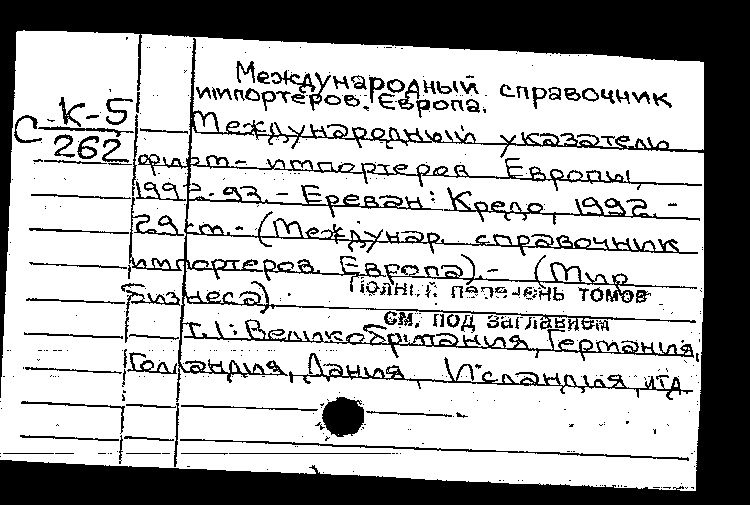 Международный справочник
импортеров. Европа.
С К-5
262
Международный указатель
фирм-импортеров Европы,
1992-93. - Ереван: Кредо, 1992. -
29 см. - (Междунар. справочник
импортеров. Европа). - (Мир
бизнеса).
Полный перечень томов
см. под заглавием
т.1: Великобритания, Германия,
Голландия, Дания, Исландия, итд.